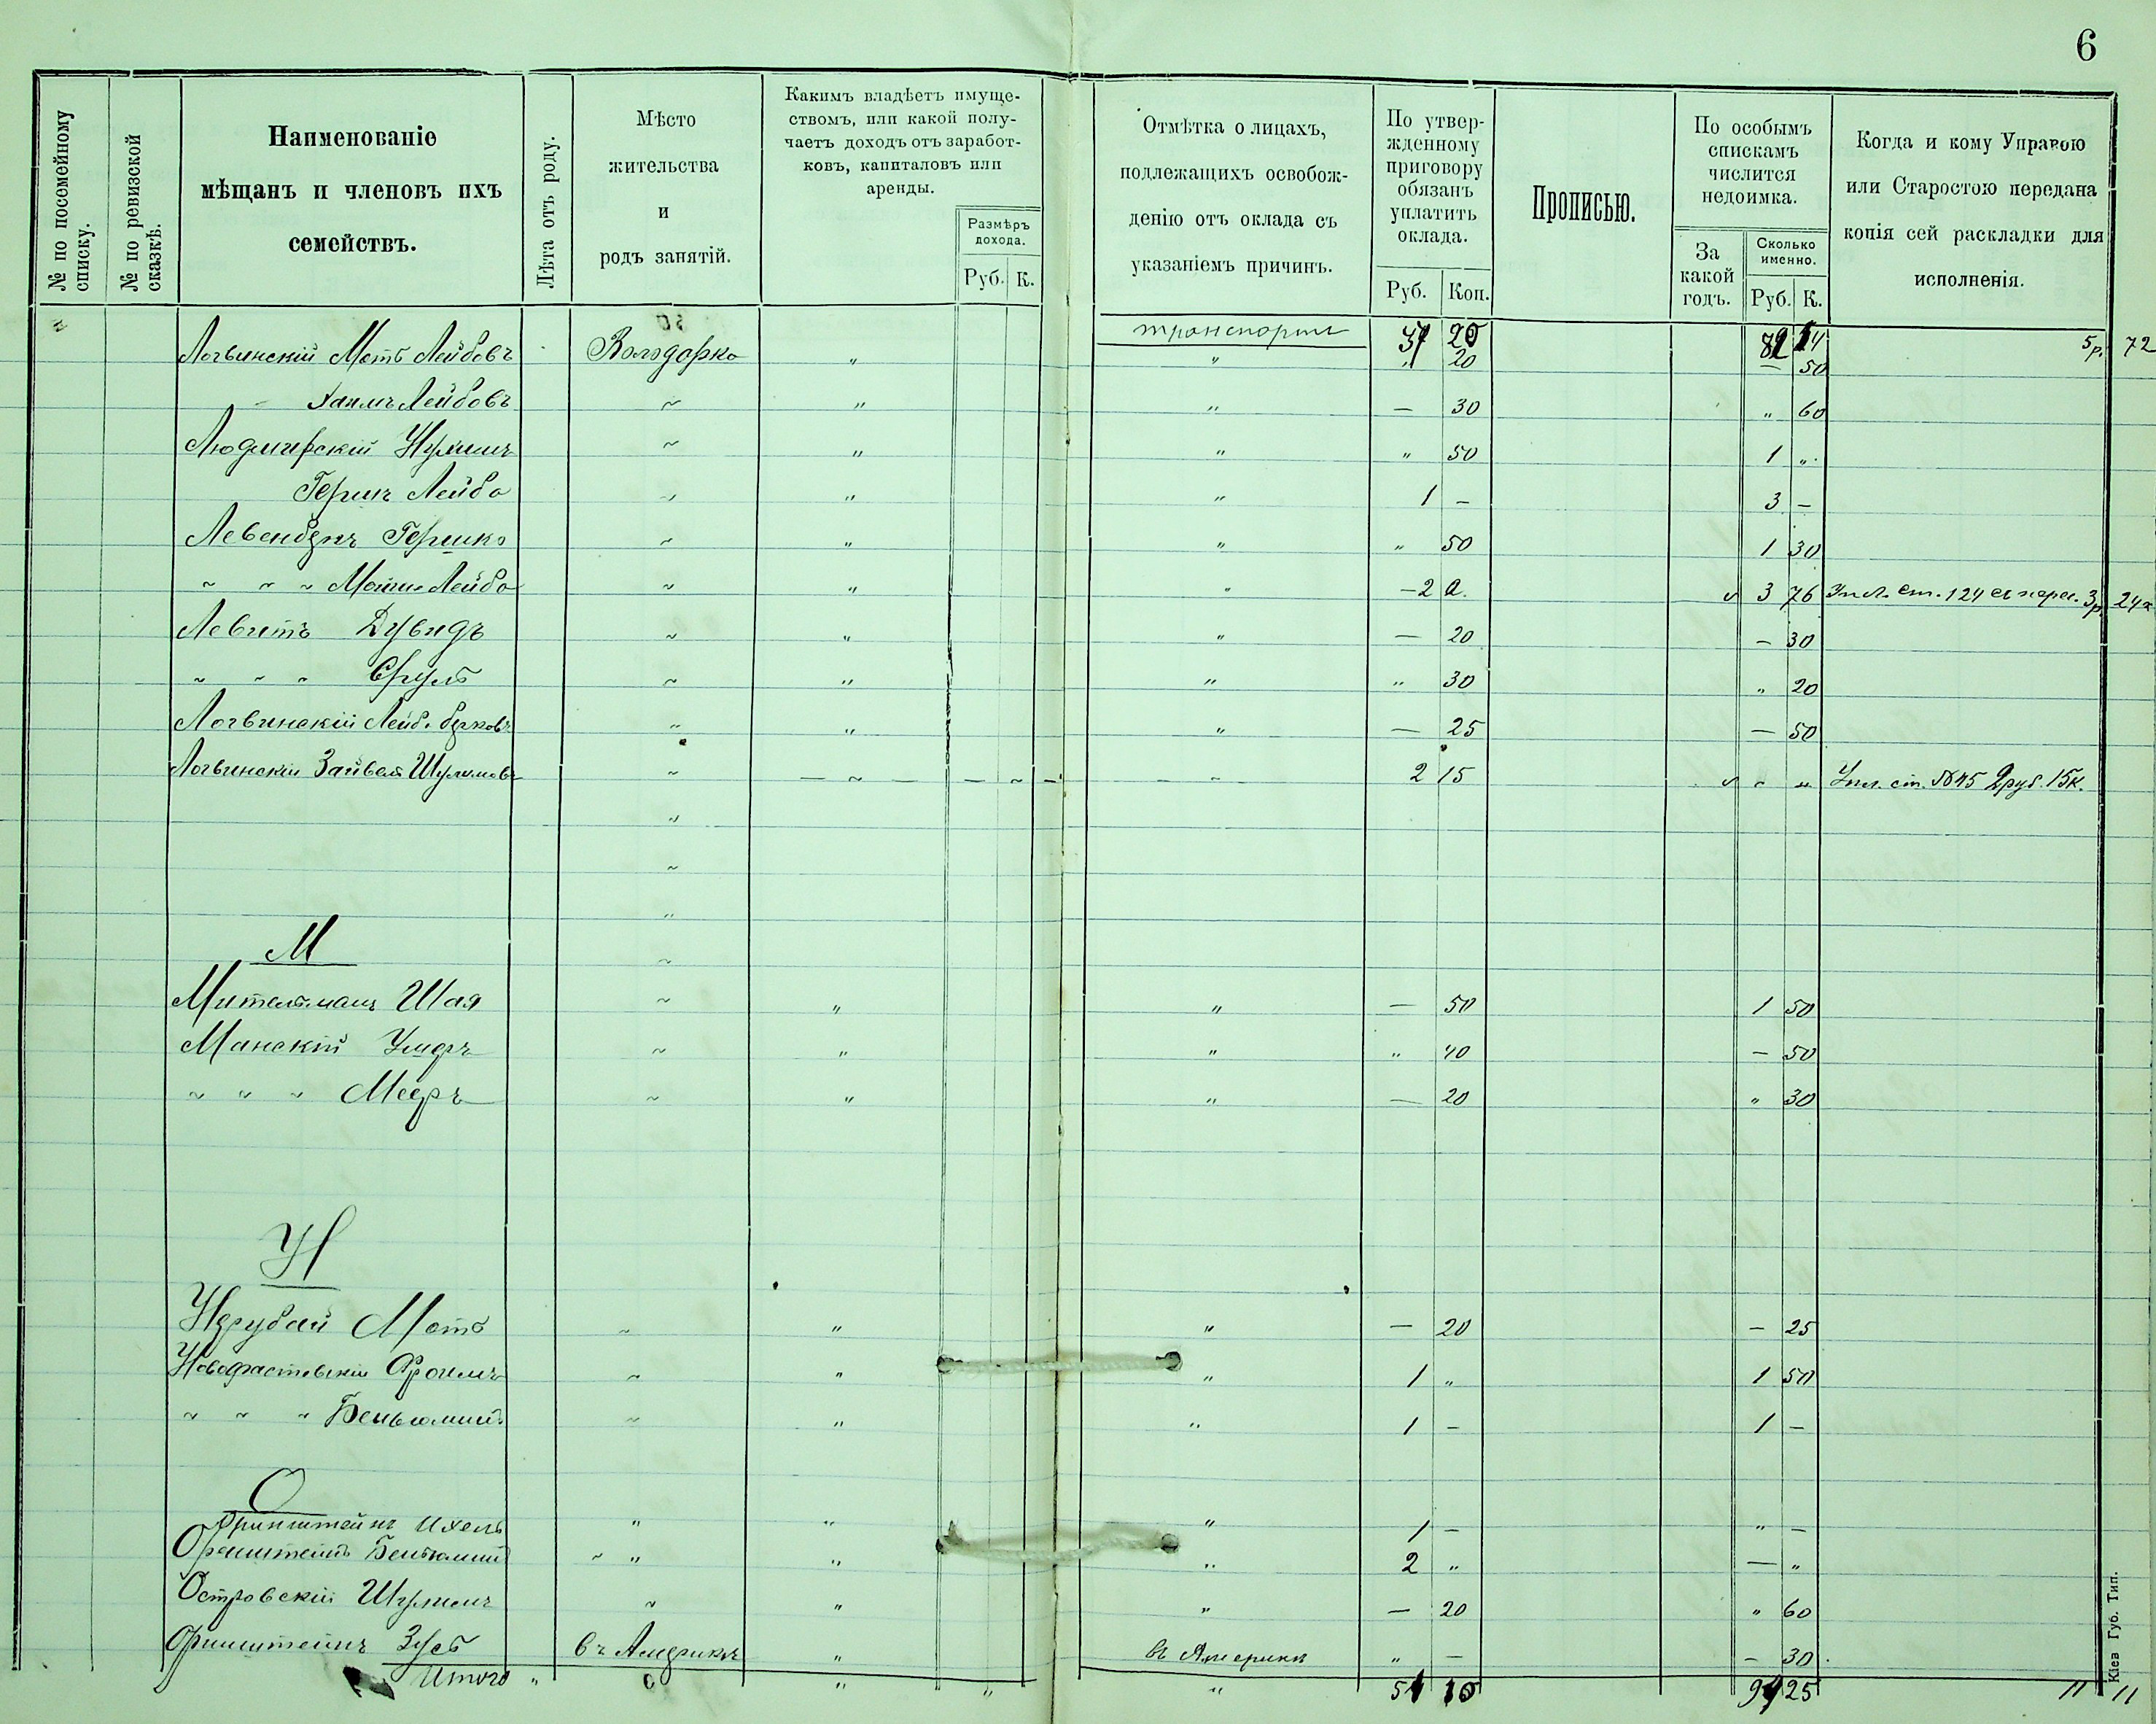 6
№ по посемейному списку.
№ по ревизской сказкѣ.
Наименованіе
мѣщанъ и членовъ ихъ
семействъ.
Лѣта отъ роду.
Мѣсто
жительства
и
родъ занятій.
Какимъ владѣетъ имуще-
ствомъ, или какой полу-
чаетъ доходъ отъ заработ-
ковъ, капиталовъ или
аренды.
Размѣръ
дохода.
Руб. К.
Отмѣтка о лицахъ,
подлежащихъ освобож-
денію отъ оклада съ
указаніемъ причинъ.
По утвер-
жденному
приговору
обязанъ
уплатить
оклада.
Руб. Коп.
Прописью.
По особымъ
спискамъ
числится
недоимка.
За
какой
годъ.
Сколько
именно.
Руб. К.
Когда и кому Управою
или Старостою передана
копія сей раскладки для
исполненія.
транспортъ 20 5р. 72
Логвинскій Моть Лейбовъ Володарка " " " 20 — 50
Хаимъ Лейбовъ ~ " " — 30 " 60
Людмирскій ~ " " " 50 1 "
Гершъ Лейба ~ " " 1 — 3 —
Левенбукъ Гершко ~ " " " 50 1 30
~ ~ ~ Лейба ~ " " — 2 3 76 ст. 124 3р 24к
Левитъ Дувидъ ~ " " — 20 — 30
~ ~ ~ Сруль ~ " " " 30 " 20
Логвинскій Лейб. Берковъ ~ " " — 25 — 50
Логвинскій Зайвель Шулимовъ ~ — ~ — — ~ — ~ 2 15 " " Упл. ст. №45 2руб. 15к.
М
Мительманъ Шая ~ " " — 50 1 50
Манскій ~ " " " 40 — 50
~ ~ ~ Мееръ ~ " " — 20 " 30
Н
Нерубай Моть ~ " " — 20 — 25
Новофастовскій Фроимъ ~ " " 1 " 1 50
~ ~ ~ Беньюминъ ~ " " 1 — 1 —
О
Оринштейнъ Ихель " " " 1 — " —
Оринштейнъ Беньюминъ ~ " " " 2 " — "
Островскій Шулимъ ~ " " — 20 " 60
Оринштейнъ Зусь въ Америкѣ " въ Америки " — — 30
Итого " " " " " 25 11 11
Кіев Губ. Тип.